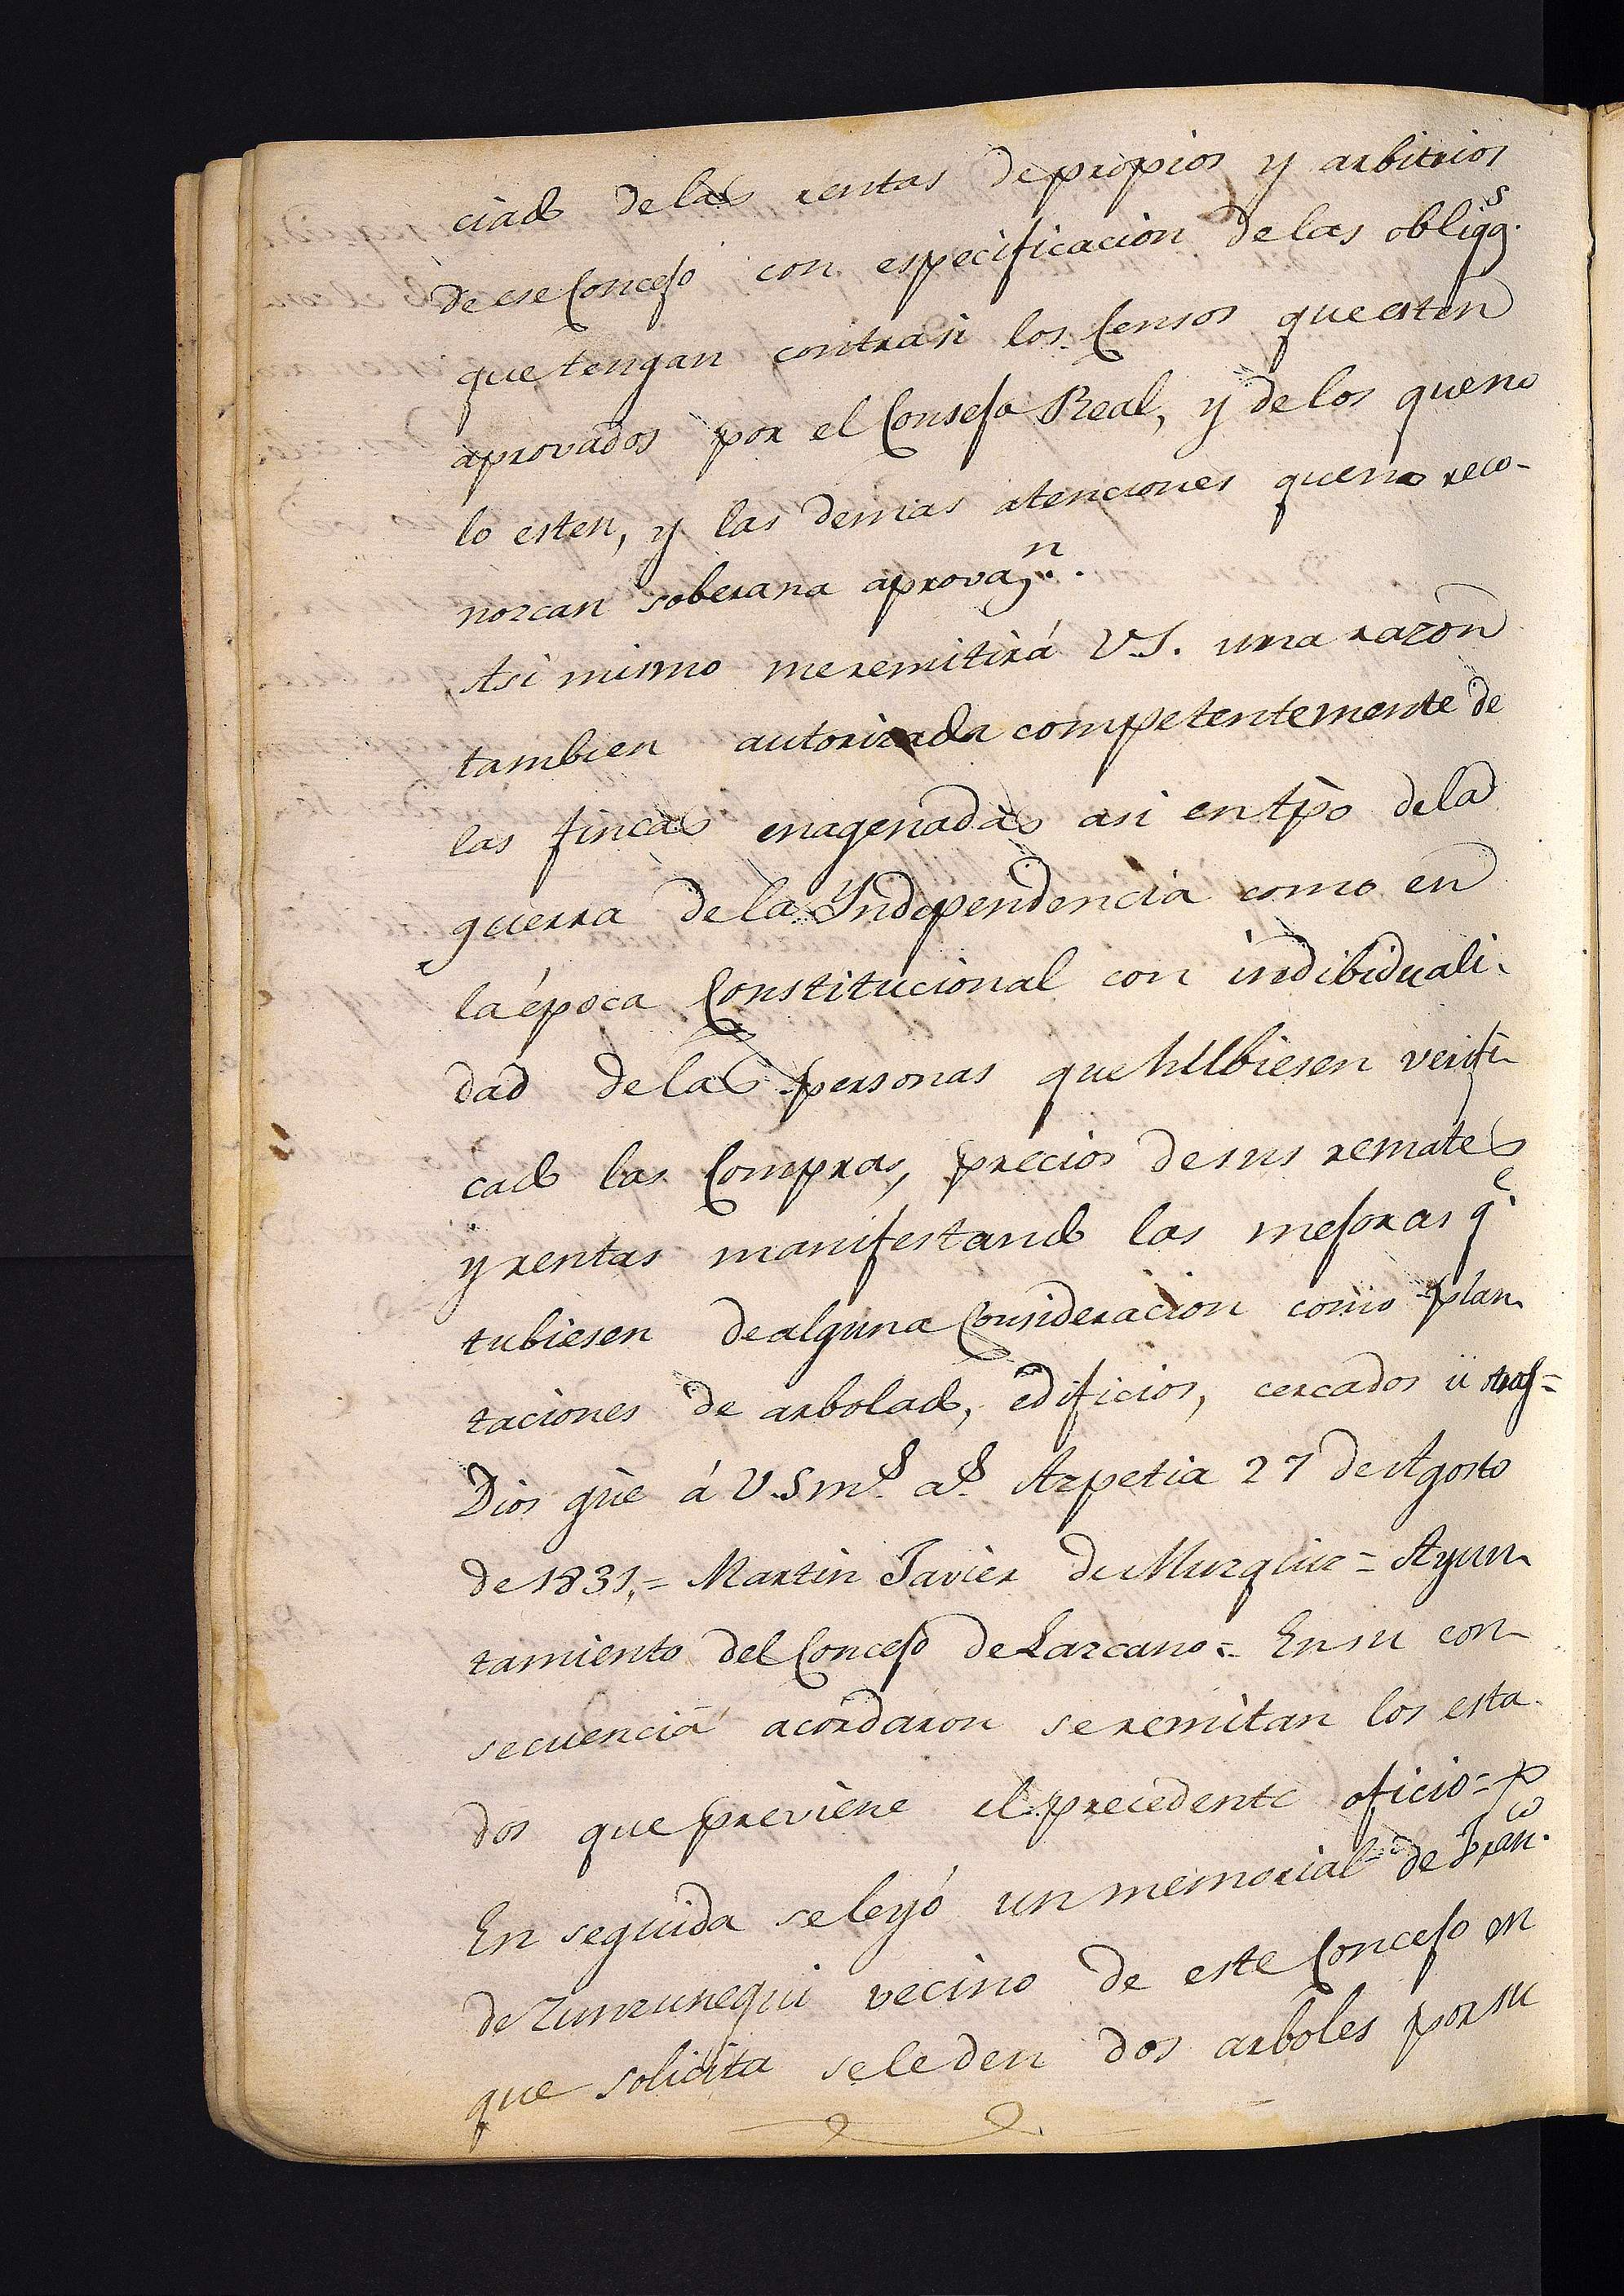 ciado de las rentas de propios y arbitrios
de ese Concejo con especificacion de las obligg.s
que tengan contra si los Censos que esten
aprovados por el Consejo Real, y de los que no
lo esten, y las demas atenciones que no reco-
nozcan soberana aprovaz.n.
Asi mismo me remitirá V.S. una razon
tambien autorizada competentemente de
las fincas enagenadas asi en tpo de la
guerra de la Independencia como en
la época Constitucional con indibiduali-
dad de las personas que hubiesen verifi-
cado las Compras, precios de sus remates
y rentas manifestando las mejoras q.e
tubiesen de alguna Consideracion como plan-
taciones de arbolado, edificios, cercados ú otras=
Dios gũe á V.S m.s a.s Azpetia 27 de Agosto
de 1831,= Martin Javier de Muzquiz= Ayun-
tamiento del Concejo de Lazcano= En su con-
secuencia acordaron se remitan los esta-
dos que previene el precedente oficio=
En seguida se leyó un memorial de Fran.co
de Zunzunegui vecino de este Concejo en
que solicita se le den dos arboles por su